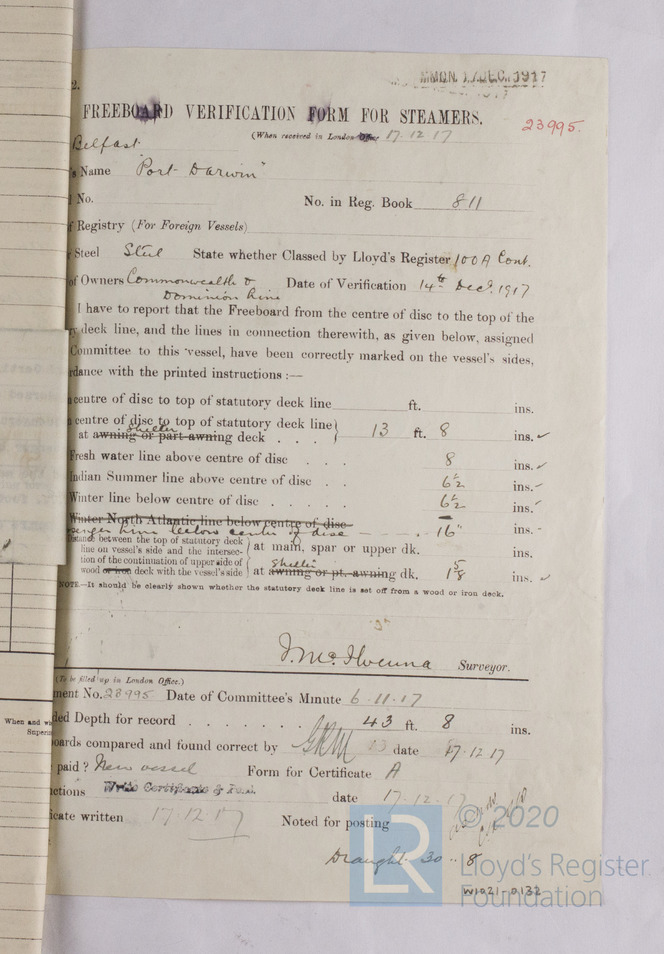 2.
MMON. 17 DEC. 1917
FREEBOARD VERIFICATION FORM FOR STEAMERS.
23995.
(When received in London Office) 17.12.17
Belfast
's Name "Port Darwin"
No. No. in Reg. Book 811
f Registry (For Foreign Vessels)
r Steel Steel State whether Classed by Lloyd's Register 100A Cont.
of Owners Commonwealth & Date of Verification 14th Dec. 1917
Dominion Line
I have to report that the Freeboard from the centre of disc to the top of the
ry deck line, and the lines in connection therewith, as given below, assigned
Committee to this vessel, have been correctly marked on the vessel's sides,
rdance with the printed instructions :—
centre of disc to top of statutory deck line ft. ins.
centre of disc to top of statutory deck line
shelter
at awning or part awning deck . . . 13 ft. 8 ins.
Fresh water line above centre of disc . . . 8 ins.
Indian Summer line above centre of disc . . 6½ ins.
Winter line below centre of disc . . . . . 6½ ins.
Winter North Atlantic line below centre of disc —
senger line below centre of disc 16" ins.
Distance between the top of statutory deck
line on vessel's side and the intersec- at main, spar or upper dk. ins.
tion of the continuation of upper side of shelter
wood or iron deck with the vessel's side at awning or pt. awning dk. 1 5/8 ins.
NOTE.—It should be clearly shown whether the statutory deck line is set off from a wood or iron deck.
Surveyor.
(To be filled up in London Office.)
ment No. 23995 Date of Committee's Minute 6.11.17
ded Depth for record . . . . . . . 43 ft. 8 ins.
oards compared and found correct by date 17.12.17
paid? New vessel Form for Certificate A
ctions Write Certificate date 17.12.17
icate written 17.12.17 Noted for posting
Draught 30 .. 8
When and w
Superi
LR © 2020
Lloyd's Register
Foundation
W1021-0132